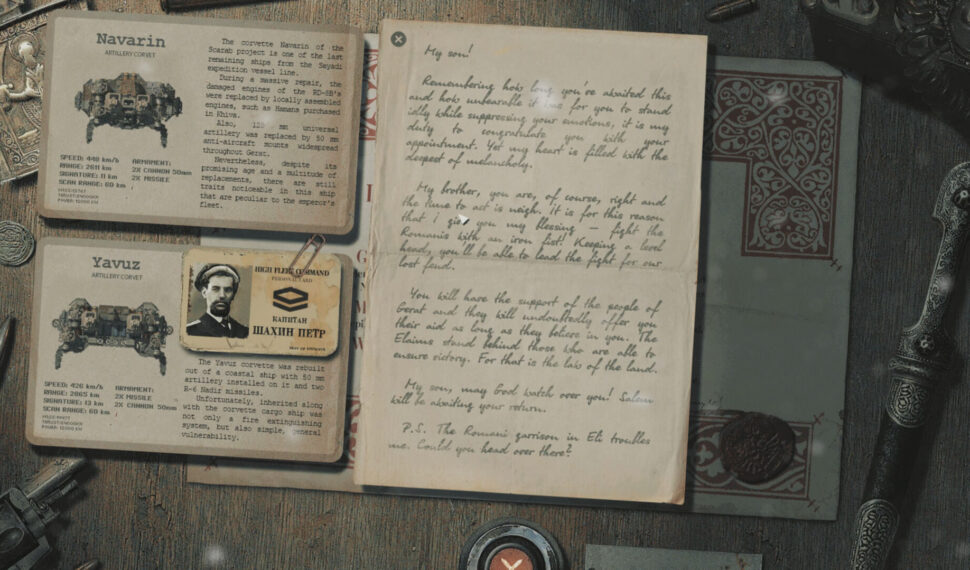 Navarin
ARTILLERY CORVET
The corvette Navarin of the
Scarab project is one of the last
remaining ships from the Sayadi
expedition vessel line.
During a massive repair, the
damaged engines of the RD-51's
were replaced by locally assembled
engines, such as Hamana purchased
in Khiva.
Also, 120 mm universal
artillery was replaced by 50 mm
anti-aircraft mounts widespread
throughout Gerat.
Nevertheless, despite its
promising age and a multitude of
replacements, there are still
traits noticeable in this ship
that are peculiar to the emperor's
fleet.
SPEED: 440 km/h
RANGE: 2611 km
SIGNATURE: 11 km
SCAN RANGE: 60 km
ARMAMENT:
2X CANNON 50mm
2X MISSILE
Yavuz
ARTILLERY CORVET
HIGH FLEET COMMAND
КАПИТАН
ШАХИН ПЕТР
The Yavuz corvette was rebuilt
out of a coastal ship with 50 mm
artillery installed on it and two
E-6 Nadir missiles.
Unfortunately, inherited along
with the corvette cargo ship was
not only a fire extinguishing
system, but also simple, general
vulnerability.
SPEED: 426 km/h
RANGE: 2065 km
SIGNATURE: 13 km
SCAN RANGE: 60 km
ARMAMENT:
2X MISSILE
2X CANNON 50mm
My son!
Remembering how long you've awaited this
and how unbearable it was for you to stand
idly while suppressing your emotions, it is my
duty to congratulate you with your
appointment. Yet my heart is filled with the
deepest of melancholy.
My brother, you are, of course, right and
the time to act is neigh. It is for this reason
that I give you my blessing — fight the
Romanis with an iron fist! Keeping a level
head, you'll be able to lead the fight for our
lost land.
You will have the support of the people of
Gerat and they will undoubtedly offer you
their aid as long as they believe in you. The
Elaims stand behind those who are able to
ensure victory. For that is the law of the land.
My son, may God watch over you! Salem
will be awaiting your return.
P.S. The Romani garrison in Eli troubles
me. Could you head over there?